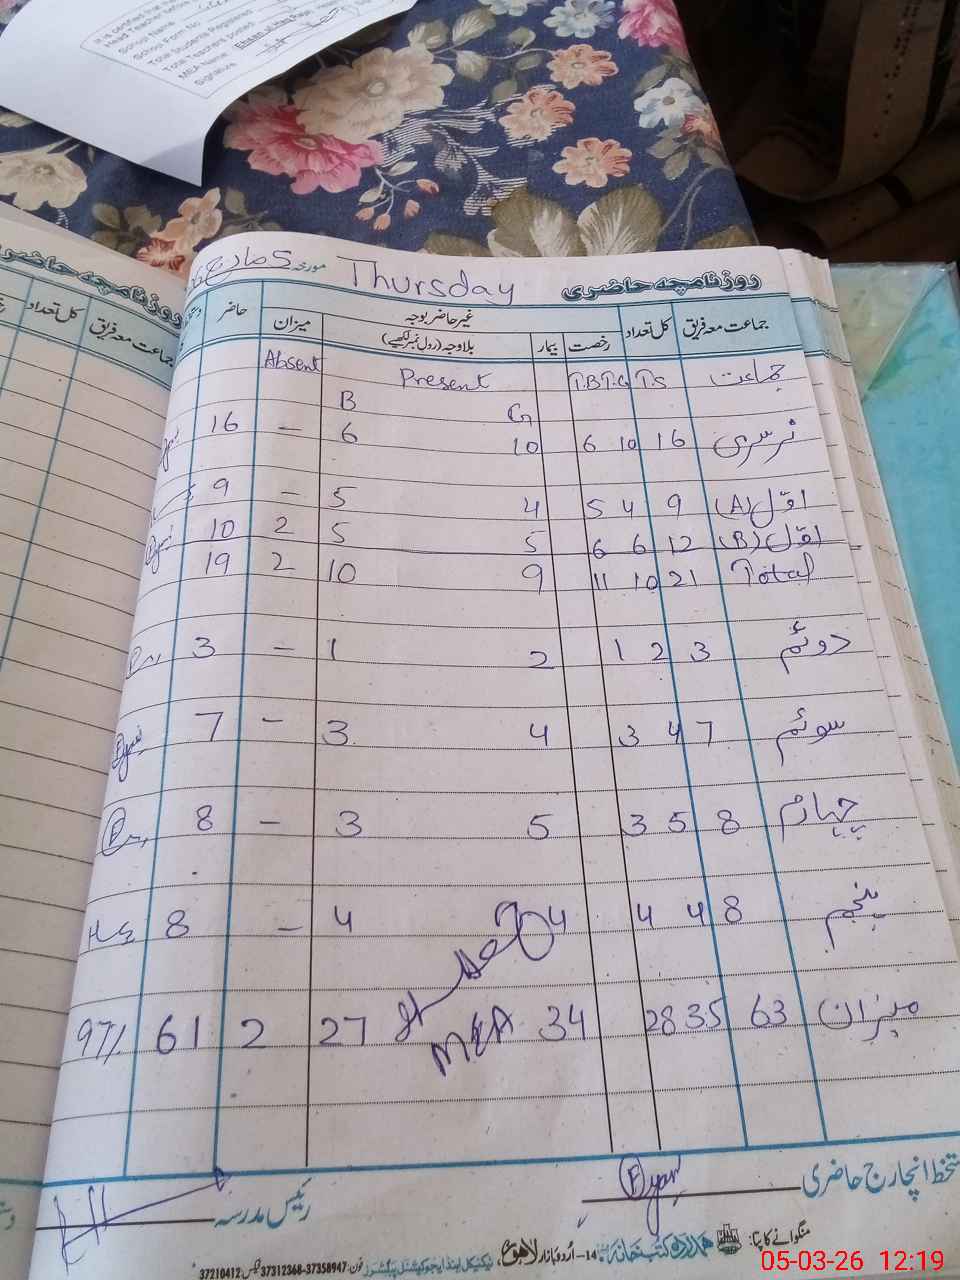 It is certified that
Head Teacher
School Name
School Form No
Total Students Registered
Total Teachers posted
MEA Name
Signature
روزنامچہ حاضری Thursday مورخہ 5 مارچ
جماعت معہ فریق کل تعداد رخصت بیمار غیر حاضر بوجہ میزان حاضر
بلاوجہ (رول نمبر لکھیے)
جماعت T.S T.G T.B Present Absent
G B
نرسری 16 10 6 10 6 – 16
اوّل (A) 9 4 5 4 5 – 9
اوّل (B) 12 6 6 5 5 2 10
Total 21 10 11 9 10 2 19
دوئم 3 2 1 2 1 – 3
سوئم 7 4 3 4 3 – 7
چہارم 8 5 3 5 3 – 8
پنجم 8 4 4 4 4 – 8
میزان 63 35 28 34 27 2 61 97%
MEA
دستخط انچارج حاضری رئیس مدرسہ
منگوانے کا پتہ: ہمدرد کتب خانہ 14-اُردو بازار لاہور
ٹیکنیکل اینڈ ایجوکیشنل پبلشرز فون: 37358947-37312368 فیکس: 37210412
روزنامچہ حاضری
جماعت معہ فریق کل تعداد
05-03-26 12:19